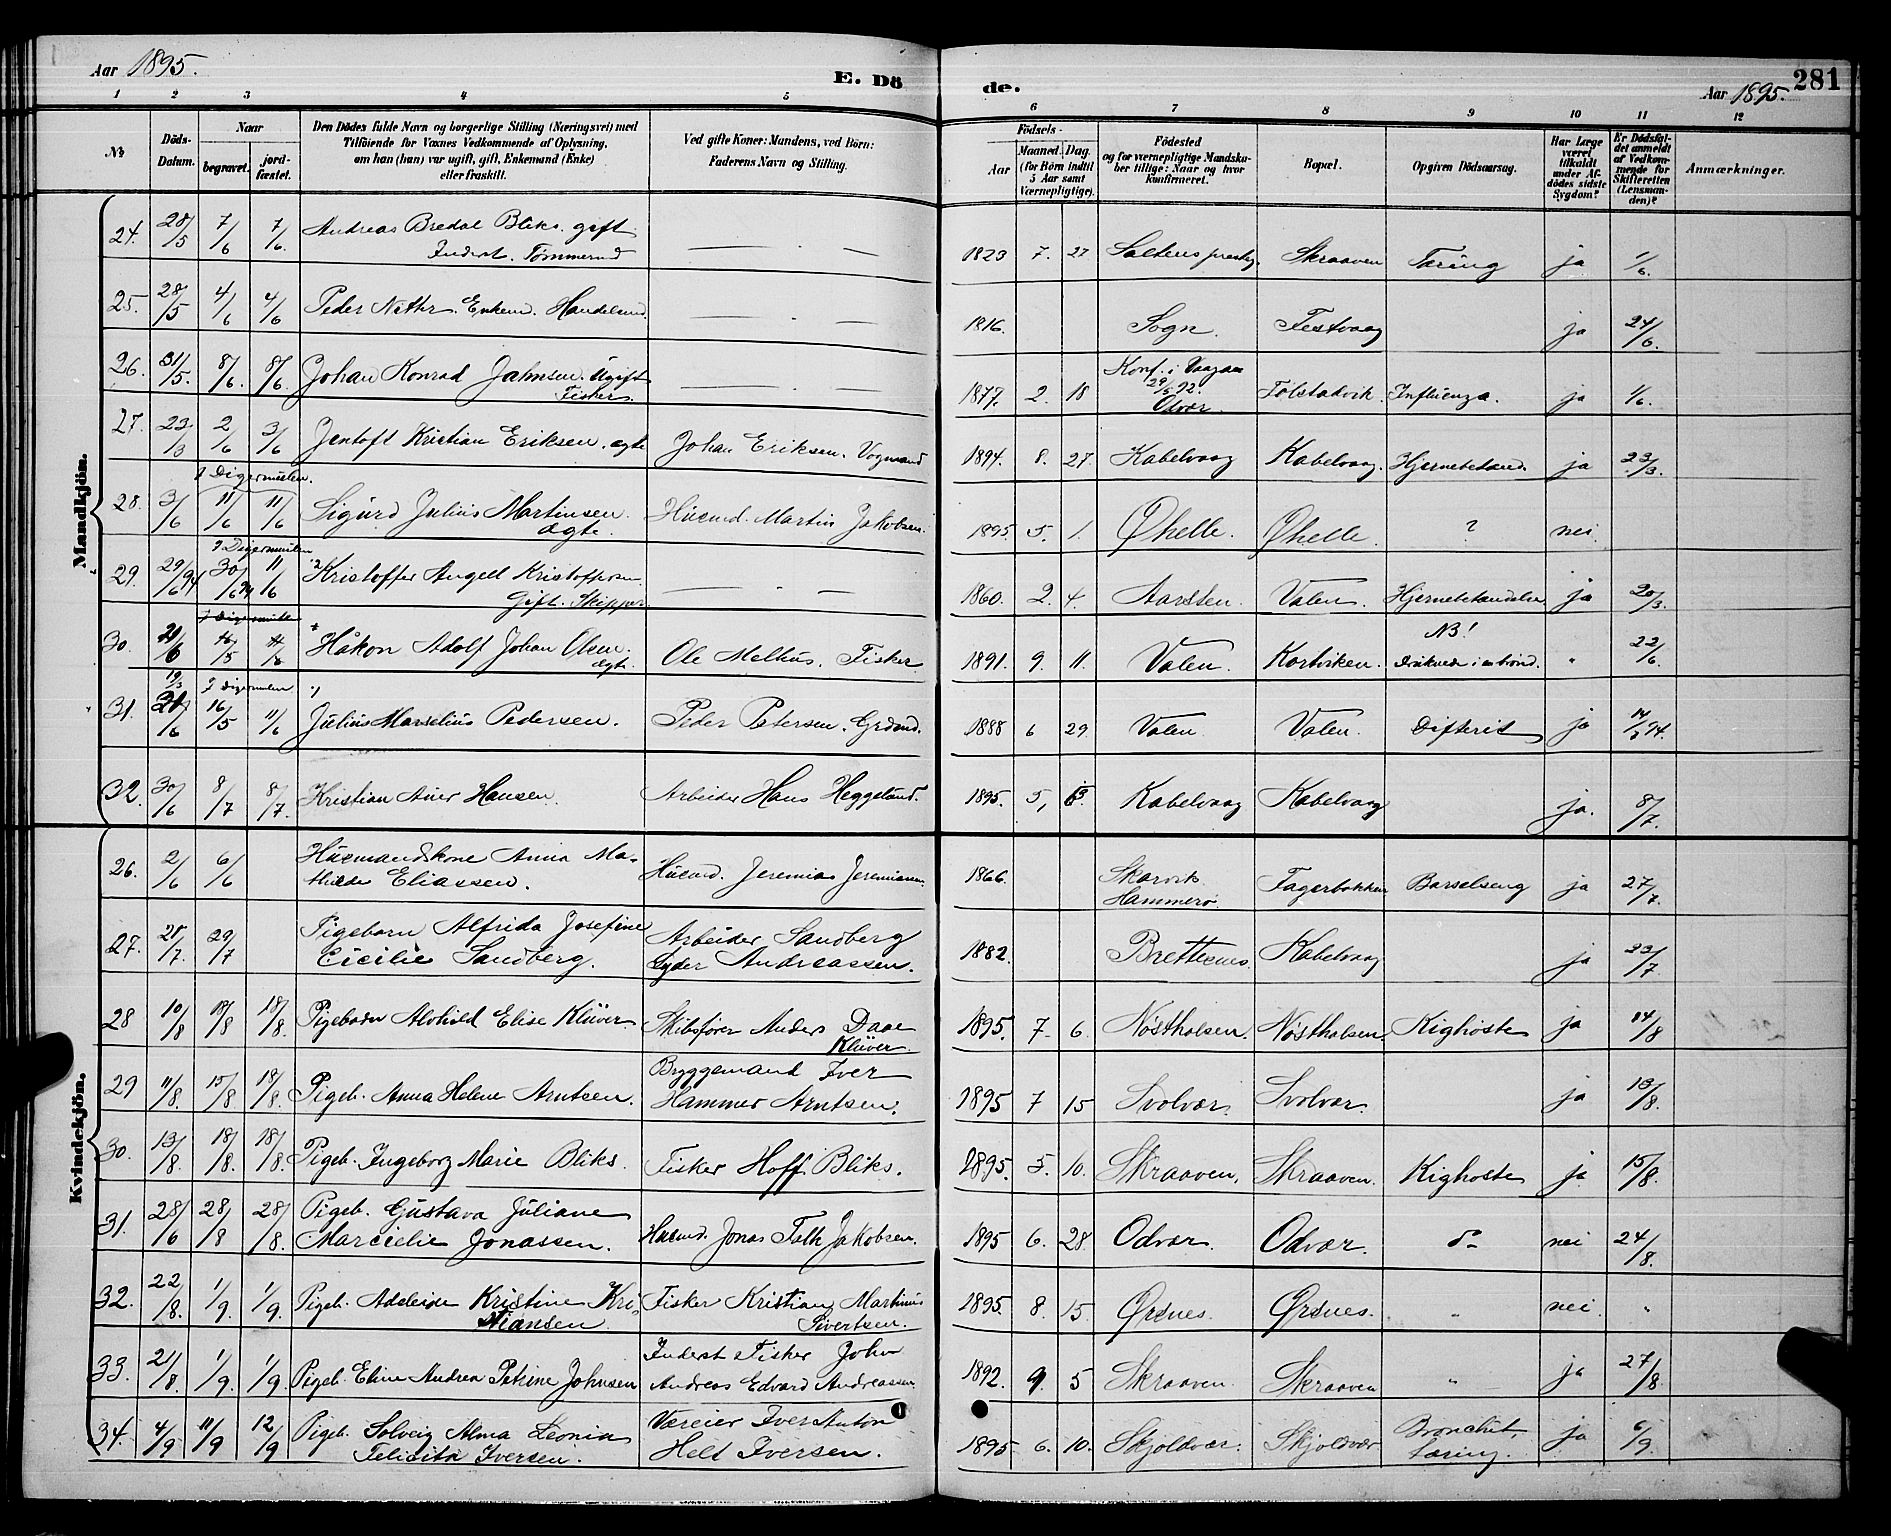 Aar 1895.
E. Dö
de.
Aar 1895.
281
1 2 3 4 5 6 7 8 9 10 11 12
№
Döds-
Datum.
Naar
begravet.
jord-
fæstet.
Den Dödes fulde Navn og borgerlige Stilling (Næringsvei) med
Tilföiende for Voxnes Vedkommende af Oplysning,
om han (hun) var ugift, gift, Enkemand (Enke)
eller fraskilt.
Ved gifte Koner: Mandens, ved Börn:
Faderens Navn og Stilling.
Födsels-
Aar
Maaned. Dag.
(for Börn indtil
5 Aar samt
Værnepligtige).
Födested
og for værnepligtige Mandska-
ber tillige: Naar og hvor
konfirmeret.
Bopæl.
Opgiven Dödsaarsag.
Har Læge
været
tilkaldt
under Af-
dödes sidste
Sygdom?
Er Dödsfal-
det anmeldt
af Vedkom-
mende for
Skifteretten
(Lensman-
den)?
Anmærkninger.
Mandkjön.
24. 28/5 7/6 7/6. Andreas Bredal Bliks. gift
Inderst. Tømmermd 1823 7. 27 Saltens prestg. Skraaven Tæring ja 1/6.
25. 28/5 4/6 4/6 Peder Enkem. Handelsmd. 1816. Sogn. Festvaag ja 24/6.
26. 31/5. 8/6. 8/6. Johan Konrad Jahnsen. Ugift
Fisker. 1877. 2. 18 Konf. i Vaagan
29/5 92.
Odvær. Folstadvik. Influenza. ja 1/6.
27. 23/3 2/6 3/6 Jentoft Kristian Eriksen. ægte Johan Eriksen. Vognmand 1894. 8. 27. Kabelvaag Kabelvaag. Hjernebetænd. ja 23/3.
I Digermulen.
28. 3/6 11/6 11/6 Sigurd Julius Martinsen.
ægte. Husmd. Martin Jakobsen. 1895 5. 1. Øhelle. Øhelle. ? nei
I Digermulen
29. 29/6 94 30/6 94 11/6 Kristoffer Angell Kristoffersen
Gift. Skipper. 1860. 2. 4. Aarsten. Valen. Hjernebetændelse ja 20/3.
I Digermulen
30. 21/6 Håkon Adolf Johan Olsen.
ægte. Ole Melhus. Fisker 1891. 9. 11. Valen. Kortviken. NB!
Druknede i en brønd. " 22/6.
19/3 I Digermulen
31. 21/6 16/5 11/6 Julius Marselius Pedersen. Peder Petersen. Grdmd. 1888 6 29 Valen Valen. Difterit ja 14/5 94.
32. 30/6 8/7 8/7. Kristian Hansen. Arbeider Hans Heggelund. 1895. 5, Kabelvaag Kabelvaag ja. 8/7.
Kvindekjön.
26. 2/6 6/6 Husmandskone Anna Ma-
thilde Eliassen. Husmd. Jeremias Jeremiasen. 1866. Skarvik
Hammerø. Fagerbakken Barselseng ja 27/7.
27. 28/7. 29/7 Pigebarn Alfrida Josefine
Cicilie Sandberg. Arbeider Sandberg
Lyder Andreassen. 1882. Brettesnes. Kabelvaag ja 23/7
28 10/8 18/8 18/8. Pigebarn Alvhild Elise Klüver Skibsfører Anders Daae
Klüver. 1895. 7. 6. Nøstholsen. Nøstholsen. Kighoste ja 14/8
29 11/8. 15/8 18/8. Pigeb. Anna Helene Arntsen. Bryggemand Iver
Hammer Arntsen. 1895 7 15 Svolvær. Svolvær. ja 13/8.
30. 13/8. 18/8. 18/8. Pigeb. Ingeborg Marie Bliks. Fisker Hoff Bliks. 1895. 5. 10. Skraaven. Skraaven. Kighoste ja 15/8.
31. 28/6 28/8 28/8. Pigeb. Gustava Juliane
Marcielie Jonassen. Husmd. Jonas Falk Jakobsen. 1895 6. 28. Odvær. Odvær. do nei 24/8.
32. 22/8. 1/9. 1/9. Pigeb. Adeleide Kristine Kri-
stiansen. Fisker Kristian Martinus
Sivertsen. 1895. 8. 15. Ørsnes. Ørsnes. " nei. "
33. 21/8. 1/9. 1/9 Pigeb. Eline Andrea Petrine Johnsen Inderst Fisker John
Andreas Edvard Andreassen. 1892. 9. 5 Skraaven. Skraaven " ja 27/8.
34. 4/9 11/9 12/9 Pigeb. Solveig Alma Leonia
Felicita Iversen. Væreier Iver Anton
Helt Iversen. 1895. 6. 10. Skjoldvær. Skjoldvær Bronchit,
tæring. ja 6/9.